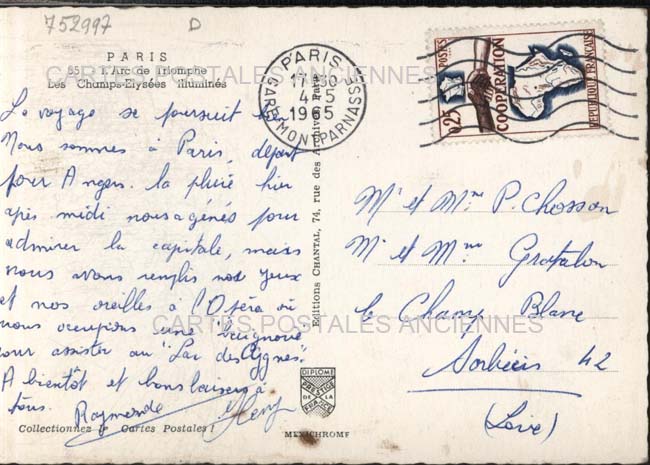 752997 D
PARIS
85 L'Arc de Triomphe
Les Champs-Elysées illuminés
CARTES POSTALES ANCIENNES
Le voyage se poursuit bien
Nous sommes à Paris, départ
pour Angers. la pluie hier
après midi nous a gênés pour
admirer la capitale, mais
nous avons remplis nos yeux
et nos oreilles à l'Opéra où
nous occupions une baignoire
pour assister au "Lac des Cygnes"
A bientôt et bons baisers à
tous. Raymonde
Collectionnez les Cartes Postales !
Editions CHANTAL, 74, rue des Archives, Paris
DIPLOME
PRESTIGE
DE LA
FRANCE
MEXICHROME
PARIS
4-5
1965
GARE MONTPARNASSE
POSTES
0,25
COOPERATION
REPUBLIQUE FRANÇAISE
Mr et Mme P. Chosson
Mr et Mme Gratalon
le Champ Blanc
Sorbiers 42
(Loire)
CARTES POSTALES ANCIENNES